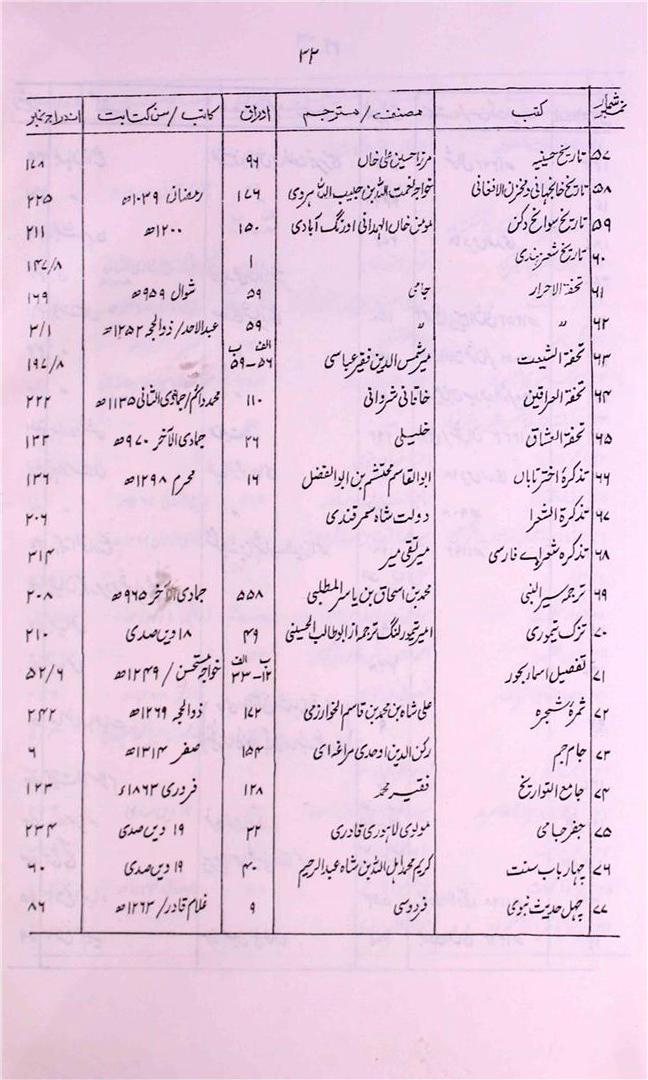 ۳۲
نمبر شمار کتب مصنف / مترجم اوراق کاتب / سن کتابت اندراج نمبر
۵۷ تاریخ حسینیہ مرزا حسین علی خاں ۹۶ ۱۷۸
۵۸ تاریخ خانجہانی و مخزن الافغانی خواجہ نعمت اللہ بن حبیب اللہ ہروی ۱۷۶ رمضان ۱۰۳۹ھ ۲۲۵
۵۹ تاریخ سوانح دکن مومن خاں الہدانی اورنگ آبادی ۱۵۰ ۱۲۰۰ھ ۲۱۱
۶۰ تاریخ شعر ہندی ۱ ۱۴۷/۸
۶۱ تحفۃ الاحرار جامی ۵۹ شوال ۹۵۹ھ ۱۶۹
۶۲ " " ۵۹ عبدالاحد / ذوالحجہ ۱۲۵۲ھ ۳/۱
۶۳ تحفۃ الشیعت میر شمس الدین فقیر عباسی الف ۵۶–۵۹ ب ۱۹۷/۸
۶۴ تحفۃ العراقین خاقانی شروانی ۱۱۰ محمد دائم / جمادی الثانی ۱۱۳۵ھ ۲۲۲
۶۵ تحفۃ العشاق خلیلی ۲۶ جمادی الآخر ۹۷۰ھ ۱۳۳
۶۶ تذکرۂ اختر تاباں ابوالقاسم محتشم بن ابوالفضل ۱۶ محرم ۱۲۹۸ھ ۱۳۶
۶۷ تذکرۃ الشعرا دولت شاہ سمرقندی ۲۰۶
۶۸ تذکرہ شعراے فارسی میر تقی میر ۳۱۴
۶۹ ترجمہ سیر النبی محمد بن اسحاق بن یاسر المطلبی ۵۵۸ جمادی الآخر ۹۶۵ھ ۲۰۸
۷۰ تزک تیموری امیر تیمور لنگ ترجمہ از ابو طالب الحسینی ۴۹ ۱۸ ویں صدی ۲۱۰
۷۱ تفصیل اسماء بحور ب ۱۲–۳۳ الف خواجہ مستحسن / ۱۲۴۹ھ ۵۲/۶
۷۲ ثمرہ شجرہ علی شاہ بن محمد بن قاسم الخوارزمی ۱۷۲ ذوالحجہ ۱۲۶۹ھ ۲۴۲
۷۳ جام جم رکن الدین اوحدی مراغہ ای ۱۵۴ صفر ۱۳۱۴ھ ۶
۷۴ جامع التواریخ فقیر محمد ۱۲۸ فروری ۱۸۶۳ء ۱۲۳
۷۵ جفر جامی مولوی لاہوری قادری ۳۲ ۱۹ ویں صدی ۲۳۴
۷۶ چہار باب سنت کریم محمد اہل اللہ بن شاہ عبدالرحیم ۴۰ ۱۹ ویں صدی ۶۰
۷۷ چہل حدیث نبوی فردوسی ۹ غلام قادر / ۱۲۶۳ھ ۸۶